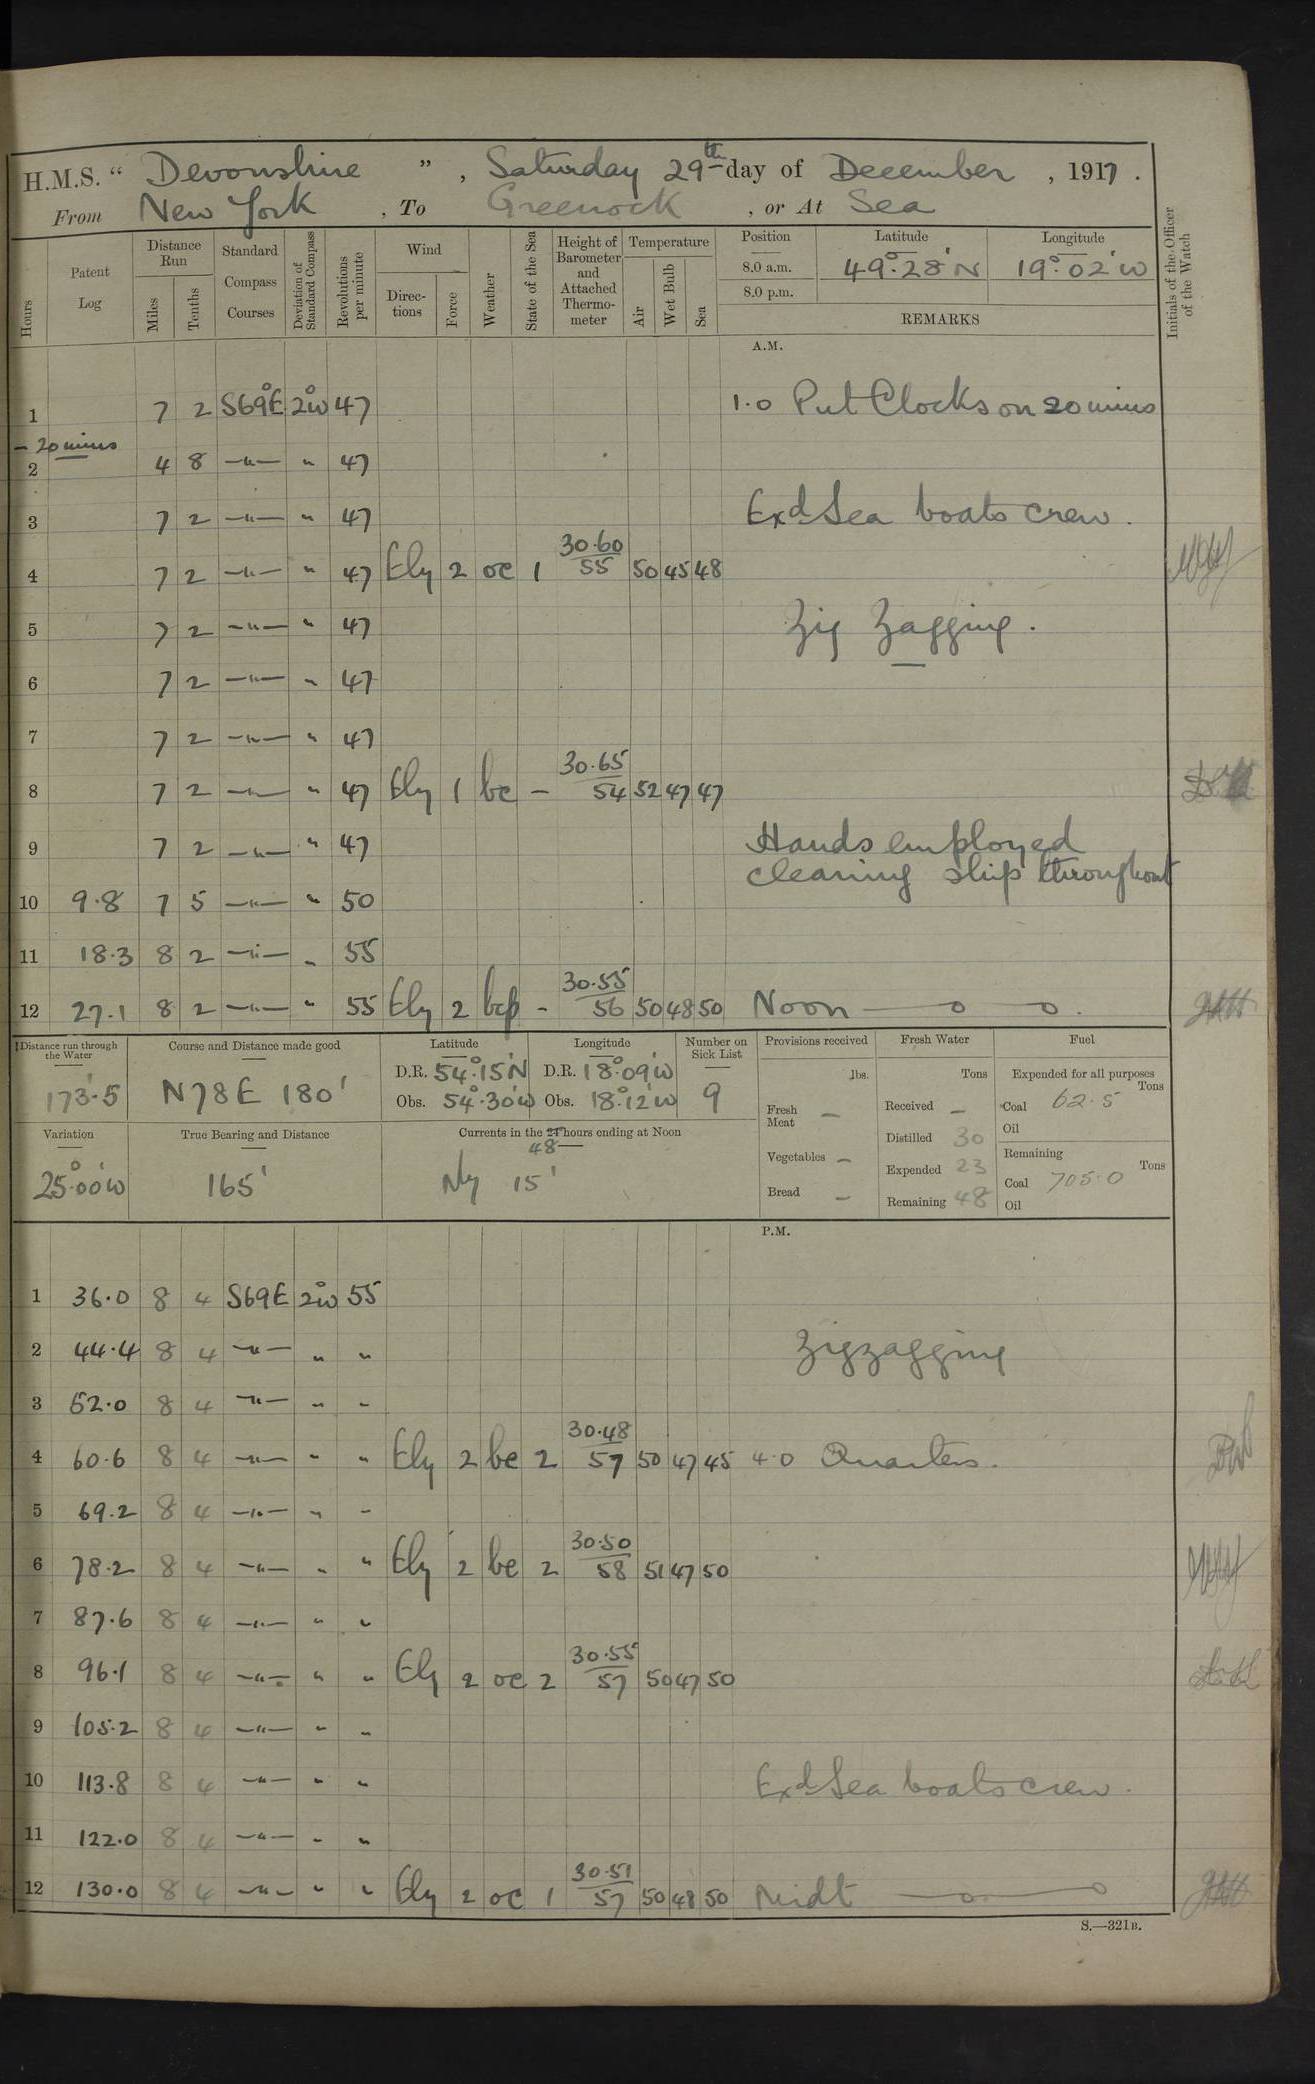 H.M.S. “ Devonshire ” , Saturday 29th day of December , 1917 .
From New York , To Greenock , or At Sea
Hours Patent Log Distance Run Miles Tenths Standard Compass Courses Deviation of Standard Compass Revolutions per minute Wind Directions Force Weather State of the Sea Height of Barometer and Attached Thermometer Temperature Air Wet Bulb Sea Position 8.0 a.m. 8.0 p.m. Latitude 49°.28'N Longitude 19°.02'W REMARKS Initials of the Officer of the Watch
A.M.
1 7 2 S69°E 2°W 47 1.0 Put Clocks on 20 mins
- 20 mins
2 4 8 —"— " 47
3 7 2 —"— " 47 Exd Sea boats crew.
4 7 2 —"— " 47 Ely 2 oc 1 30.60 55 50 45 48
5 7 2 —"— " 47 Zig Zagging.
6 7 2 —"— " 47
7 7 2 —"— " 47
8 7 2 —"— " 47 Ely 1 bc - 30.65 54 52 47 47
9 7 2 —"— " 47 Hands employed
cleaning ship throughout
10 9.8 7 5 —"— " 50
11 18.3 8 2 —"— " 55
12 27.1 8 2 —"— " 55 Ely 2 bcp - 30.55 56 50 48 50 Noon — o — o.
Distance run through the Water 173'.5
Course and Distance made good N78E 180'
Latitude D.R. 54°.15'N Obs. 54°.30'W
Longitude D.R. 18°.09'W Obs. 18°.12'W
Number on Sick List 9
Provisions received lbs. Fresh Meat — Vegetables — Bread —
Fresh Water Tons Received — Distilled 30 Expended 23 Remaining 48
Fuel Expended for all purposes Tons Coal 62.5 Oil Remaining Tons Coal 705.0 Oil
Variation 25°.00'W
True Bearing and Distance 165'
Currents in the 24 hours ending at Noon
48
Nly 15'
P.M.
1 36.0 8 4 S69E 2°W 55
2 44.4 8 4 —"— " " Zigzagging
3 52.0 8 4 —"— " "
4 60.6 8 4 —"— " " Ely 2 bc 2 30.48 57 50 47 45 4.0 Quarters.
5 69.2 8 4 —"— " "
6 78.2 8 4 —"— " " Ely 2 bc 2 30.50 58 51 47 50
7 87.6 8 4 —"— " "
8 96.1 8 4 —"— " " Ely 2 oc 2 30.55 57 50 47 50
9 105.2 8 4 —"— " "
10 113.8 8 4 —"— " " Exd Sea boats crew.
11 122.0 8 4 —"— " "
12 130.0 8 4 —"— " " Ely 2 oc 1 30.51 57 50 48 50 Midt — o — o
S.—321B.